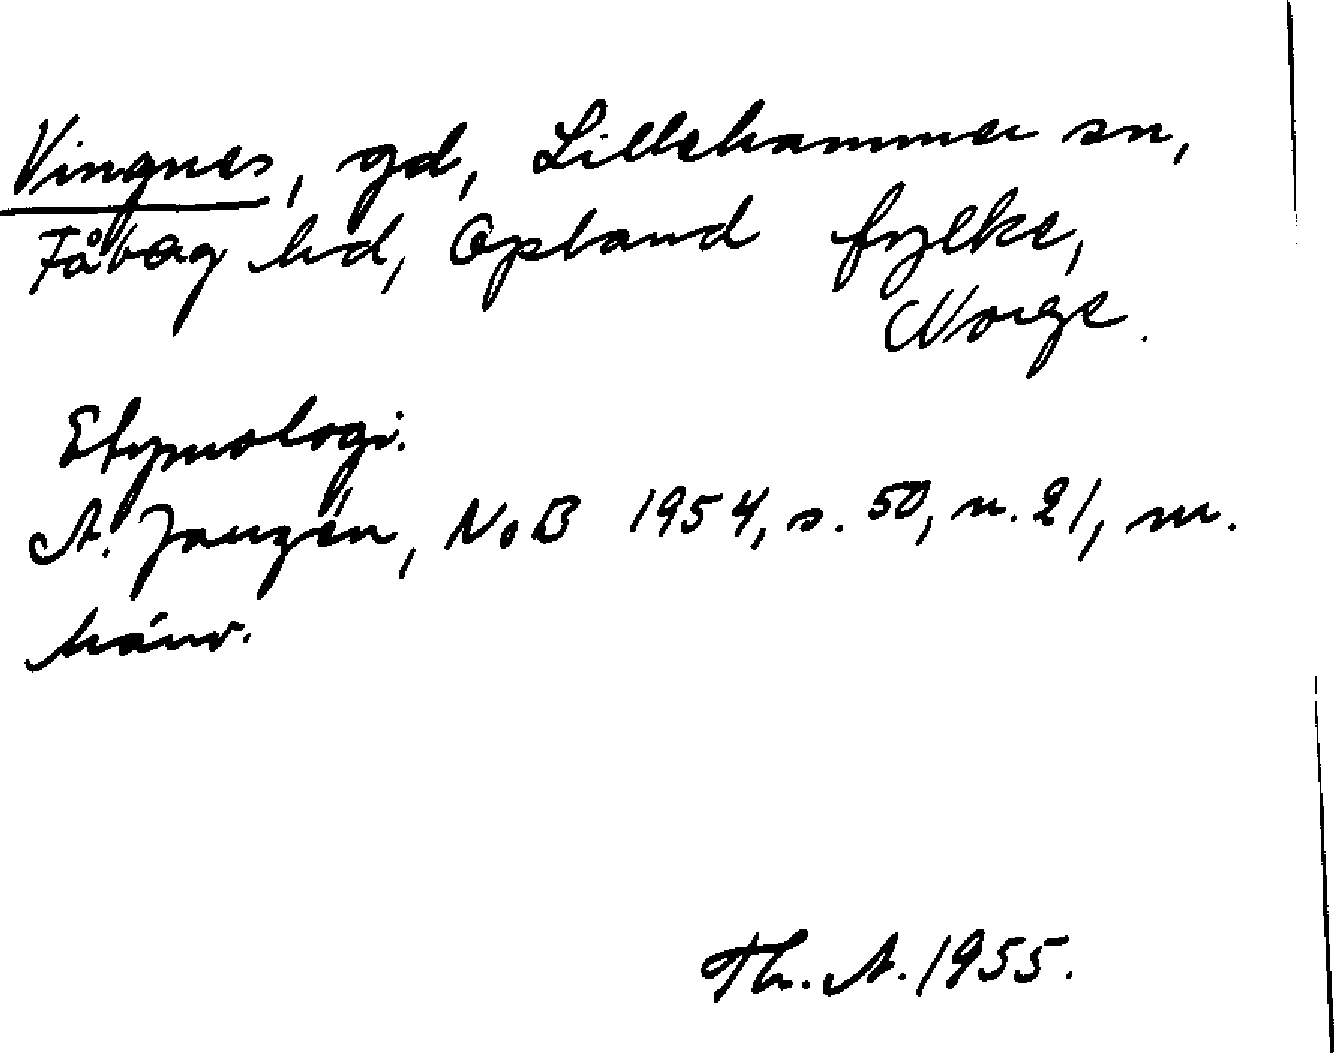 Vingnes, gd, Lillehammer sn,
Fåbæg hd, Opland fylke,
Norge.
Etymologi.
A. Janzén, NoB 1954, s. 50, n. 21, m.
hänv.
Th. A. 1955.